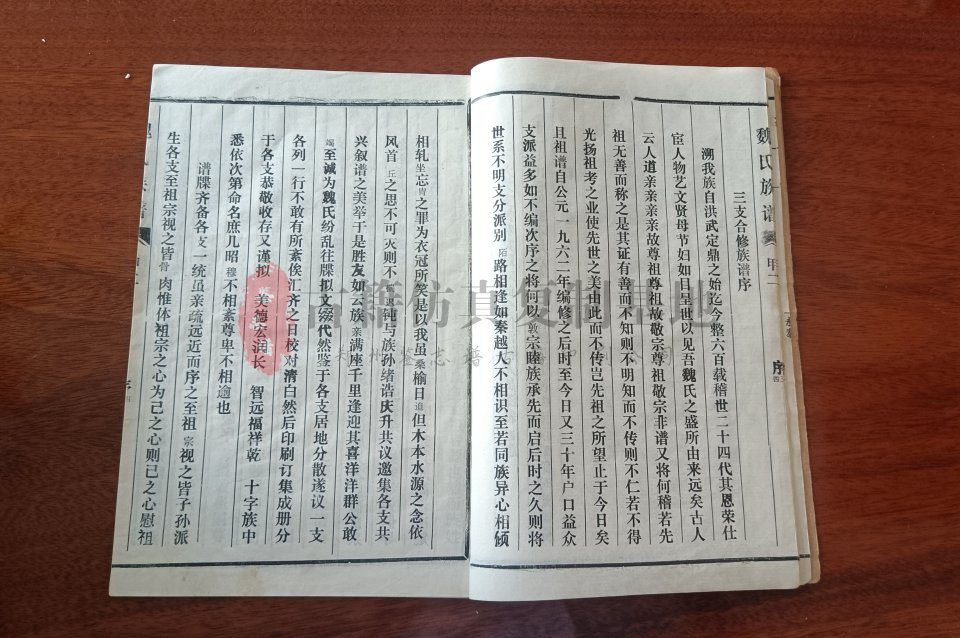 魏氏族谱 甲二
序
四
三支合修族谱序
溯我族自洪武定鼎之始迄今整六百载稽世二十四代其恩荣仕
宦人物艺文贤母节妇如日星世以见吾魏氏之盛所由来远矣古人
云人道亲亲亲亲故尊祖尊祖故敬宗尊祖敬宗非谱又将何稽若先
祖无善而称之是其证有善而不知则不明知而不传则不仁若不得
光扬祖考之业使先世之美由此而不传岂先祖之所望止于今日矣
且祖谱自公元一九六二年编修之后时至今日又三十年户口益众
支派益多如不编次序之将何以敦宗睦族承先而启后时之久则将
世系不明支分派别陌路相逢如秦越人不相识至若同族异心相倾
相轧坐忘胄之罪为衣冠所笑是以我虽桑榆日迫但木本水源之念依
风首丘之思不可灭则不与族孙绪浩庆升共议邀集各支共
兴叙谱之美举于是胜友如云族亲满座千里逢迎其喜洋洋群公敢
竭至诚为魏氏纷乱往牒拟文代然鉴于各支居地分散遂议一支
各列一行不敢有所紊俟汇齐之日校对清白然后印刷订集成册分
于各支恭敬收存又谨拟 美德宏润长 智远福祥乾 十字族中
悉依次第命名庶几昭穆不相紊尊卑不相逾也
谱牒齐备各支一统虽亲疏远近而序之至祖宗视之皆子孙派
生各支至祖宗视之皆骨肉惟体祖宗之心为己之心则己之心慰祖